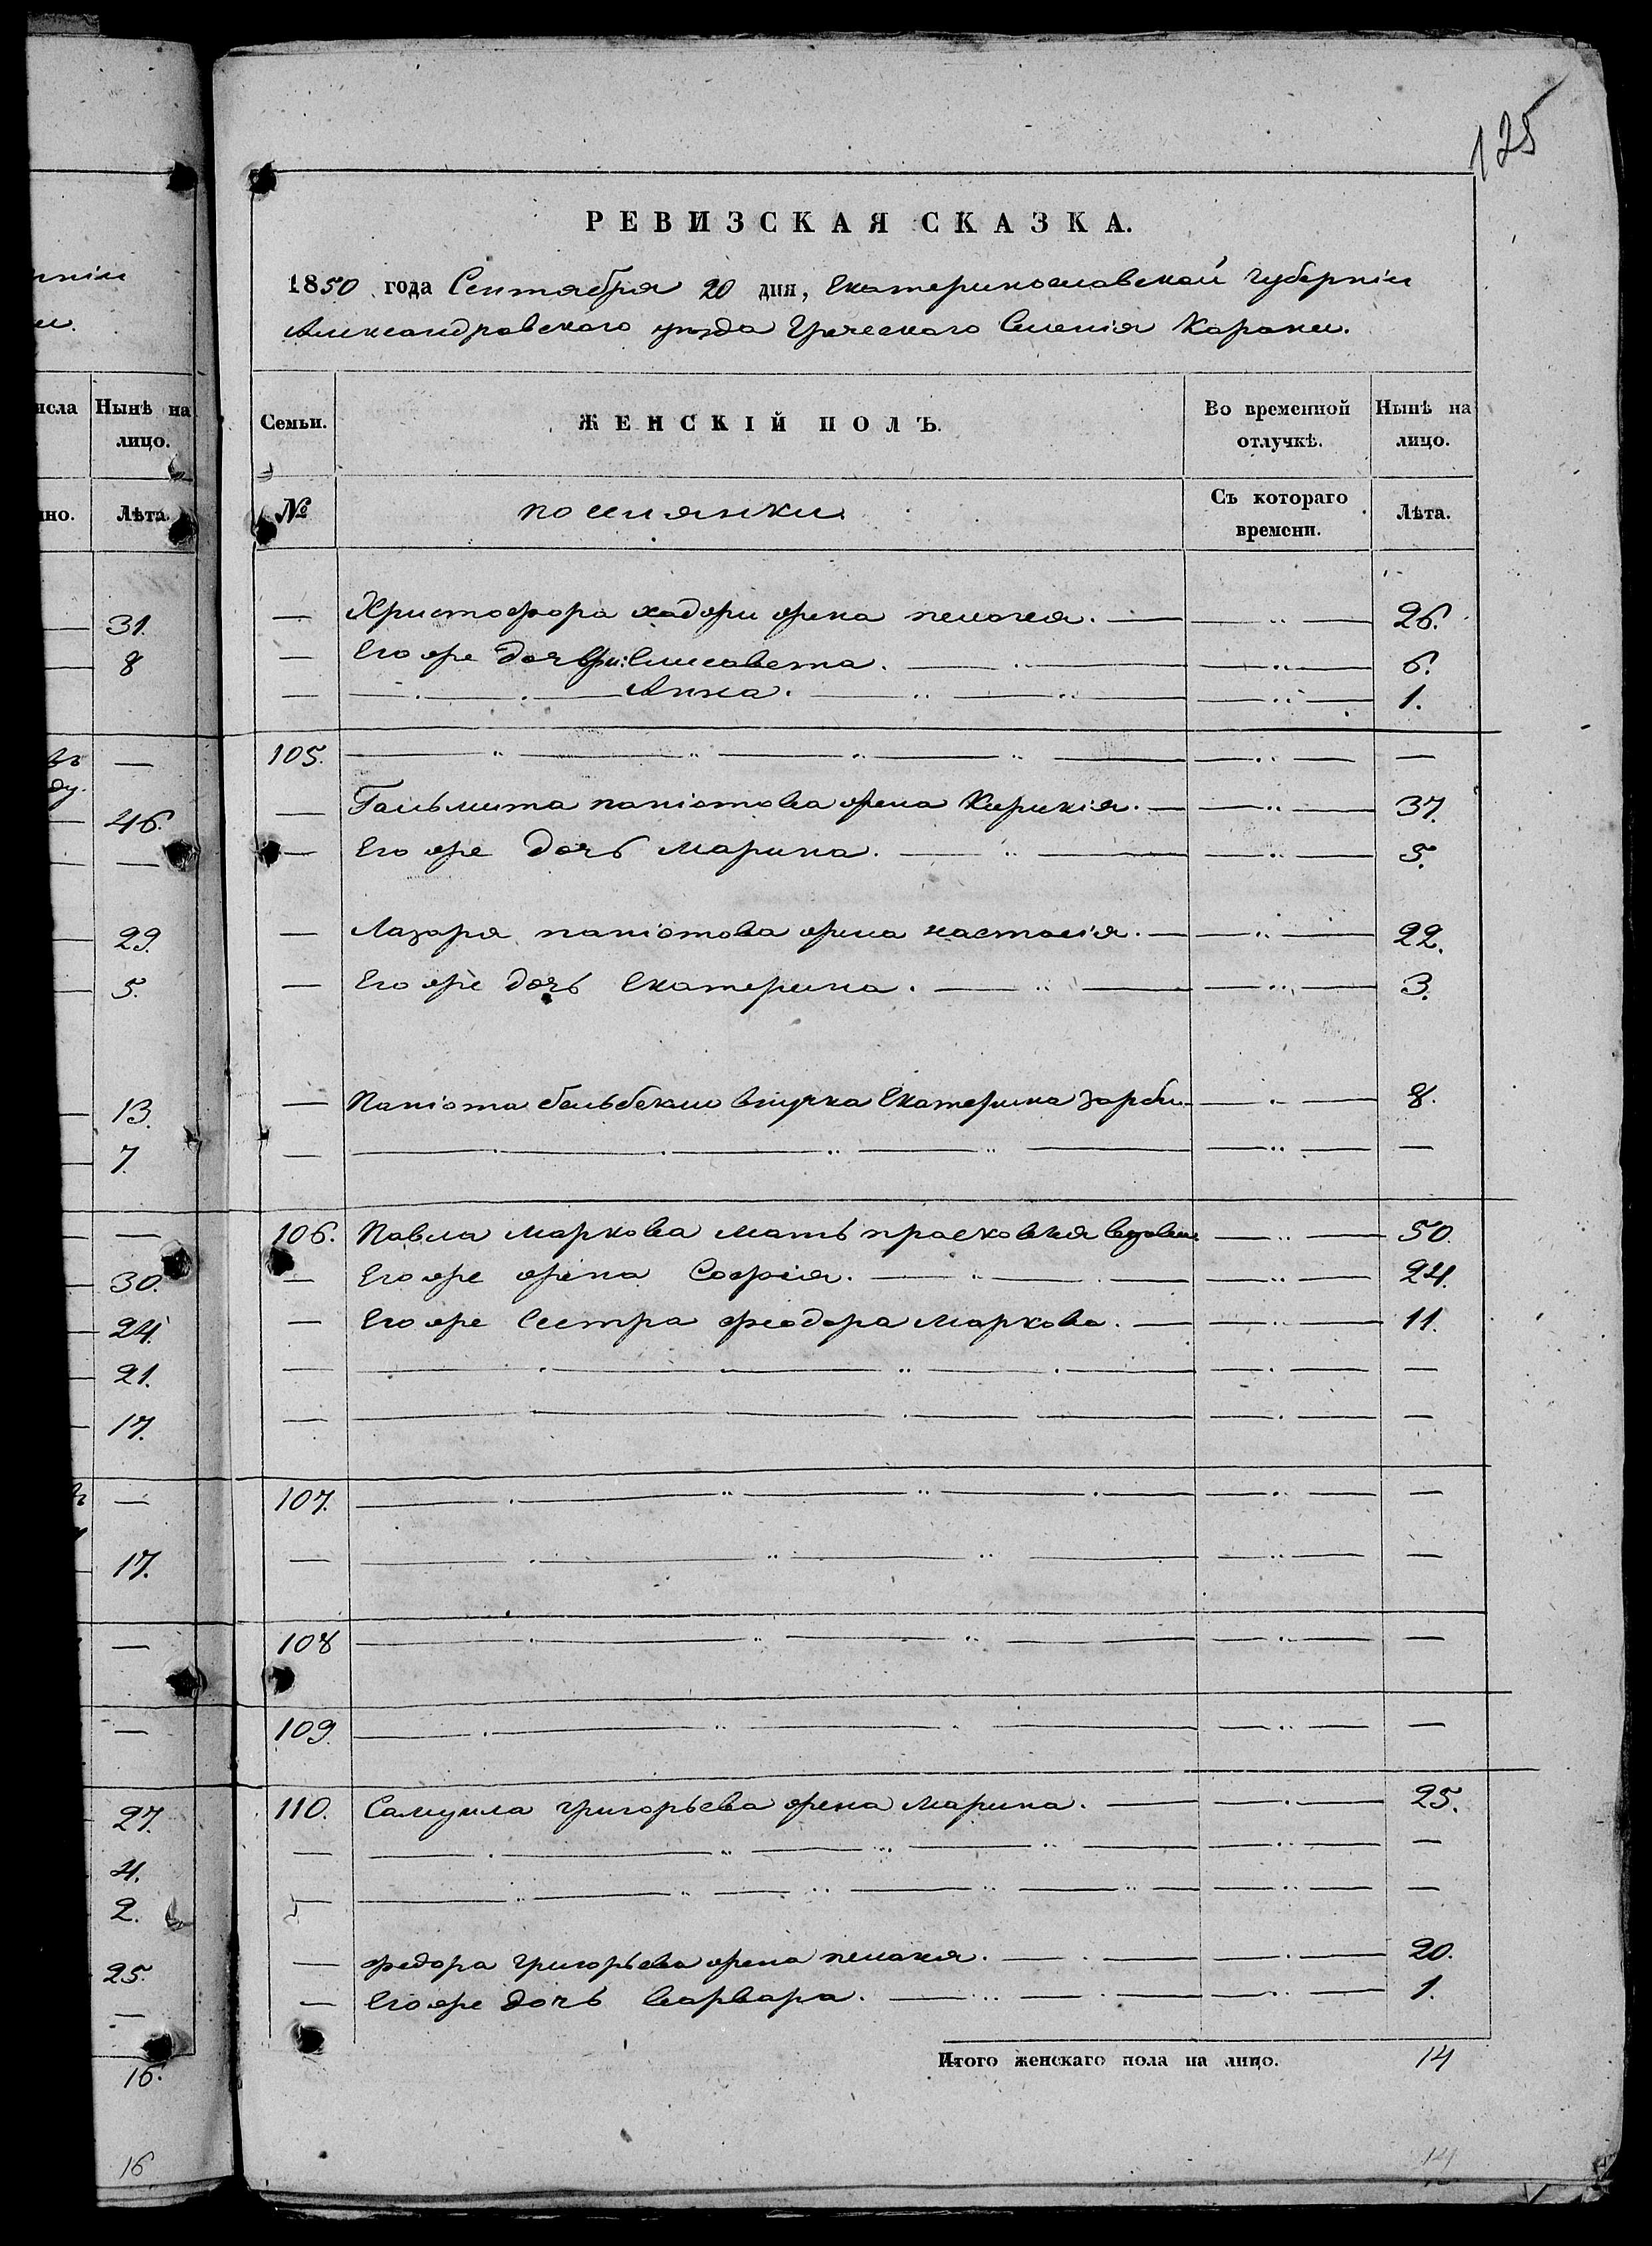 125
РЕВИЗСКАЯ СКАЗКА.
1850 года Сентября 20 дня, Екатеринославской губернiи
Александровского уезда Греческого Селенiя Карани.
Семьи. ЖЕНСКІЙ ПОЛЪ. Во временной отлучкѣ. Нынѣ на лицо.
№ поселянки Съ котораго времени. Лѣта.
— Христофора хаджи жена пелагея. — 26.
— Его же дочери: Елисавета. — 6.
— Анна. — 1.
105. — —
— панiотова жена Кирикiя. — 37.
— Его же дочь Марина. — 5.
— Лазаря панiотова жена настасiя. — 22.
— Его же дочь Екатерина. — 3.
— Панiота внучка Екатерина — 8.
— — —
106. Павла Маркова мать прасковия вдова — 50.
— Его же жена Софiя. — 24.
— Его же сестра феодора Маркова. — 11.
— — —
— — —
107. — —
— — —
108 — —
109. — —
110. Самуила григорьева жена Марина. — 25.
— — —
— — —
— федора григорьева жена пелагея. — 20.
— Его же дочь варвара. — 1.
Итого женскаго пола на лицо. 14
14
нiи
исла Нынѣ на лицо.
но. Лѣта.
31.
8
—
46.
—
29.
5.
13.
7.
—
30.
24.
21.
17.
—
17.
—
—
27.
4.
2.
25.
—
16.
16